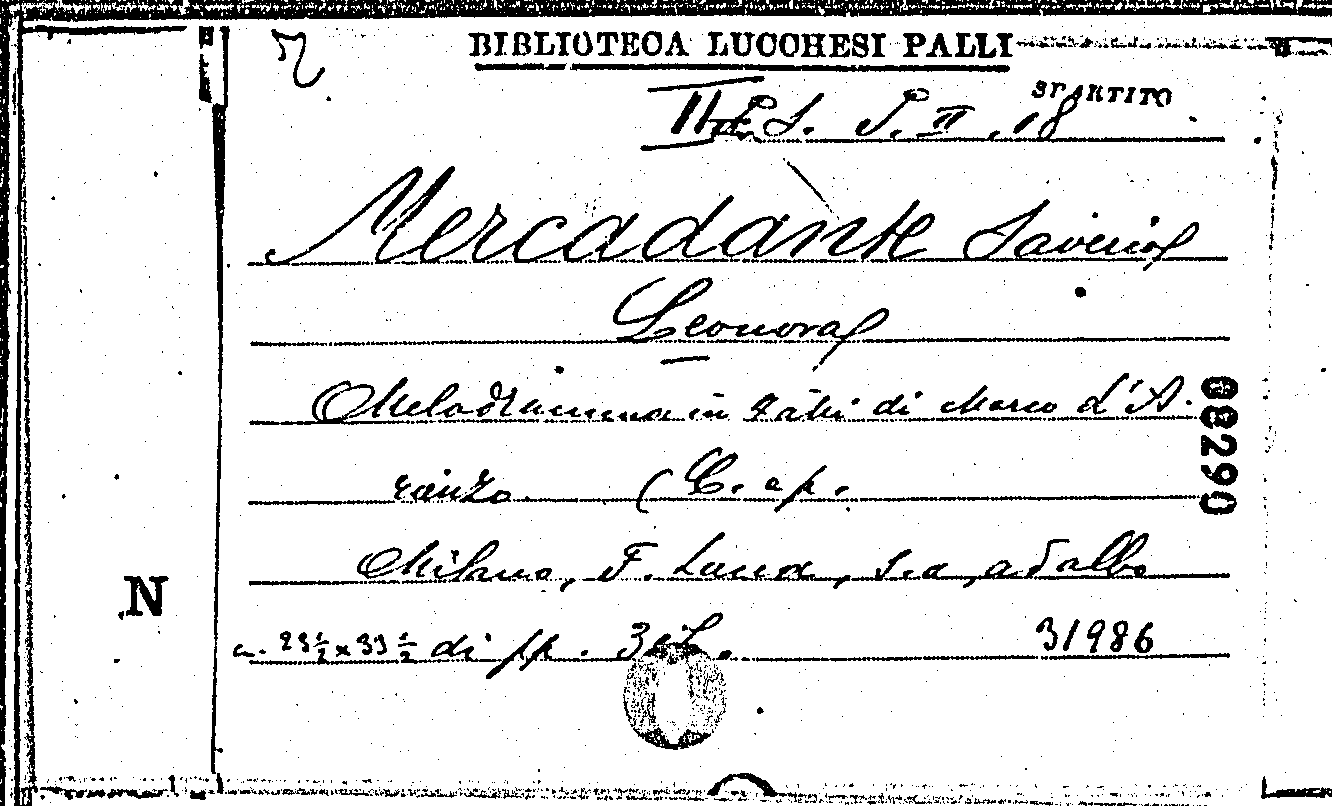 BIBLIOTECA LUCCHESI PALLI
SPARTITO
S. II . 18
Mercadante Saverio
Leonora
Melodramma in 4 atti di Marco d'A.
rienzo (C. e p.
Milano, F. Lucca, s. a., ad albo
c. 23½ x 33½ di pp.
31986
88290
N